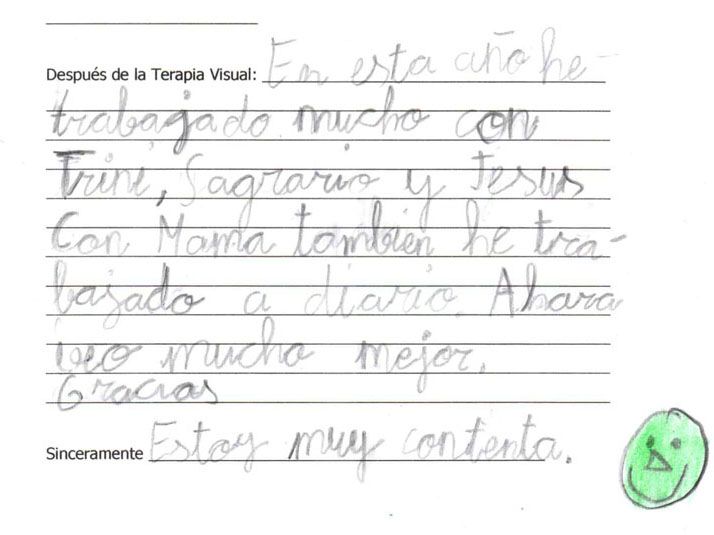 Después de la Terapia Visual: En esta año he
trabajado mucho con
Trini, Sagrario y Jesus
Con Mama también he tra-
bajado a diario. Ahora
veo mucho mejor.
Gracias
Sinceramente Estoy muy contenta.